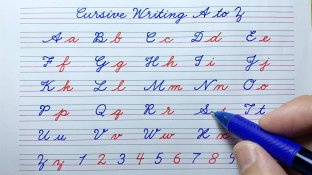 Cursive Writing A to Z
A a B b C c D d E e
F f G g H h I i J j
K k L l M m N n O o
P p Q q R r S T t
U u V v W w X
Z z 1 2 3 4 5 6 7 8 9